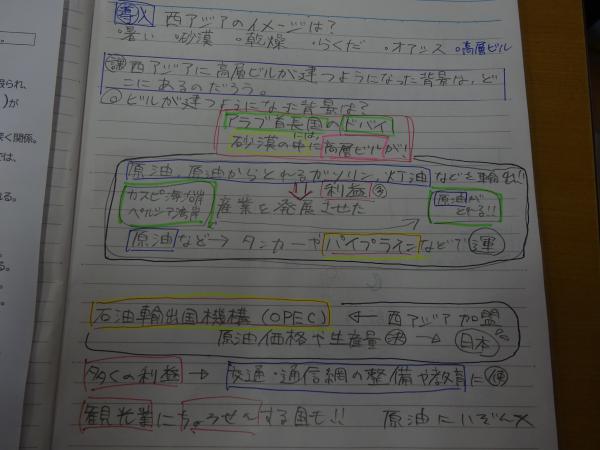 られ、
)が
深く関係。
では、
る。
導入 西アジアのイメージは?
・暑い ・砂漠 ・乾燥 ・らくだ ・オアシス ・高層ビル
課 西アジアに高層ビルが建つようになった背景は、ど
こにあるのだろう。
◎ビルが建つようになった背景は?
アラブ首長国のドバイ
には、
砂漠の中に高層ビルが!
原油、原油からとれるガソリン、灯油などを輸出!!
利益 多
カスピ海沿岸
ペルシア湾岸
産業を発展させた
原油が
とれる!!
原油など→タンカーやパイプラインなどで運
石油輸出国機構(OPEC) ← 西アジア加盟
原油価格や生産量 決 → 日本
多くの利益 → 交通・通信網の整備や教育に使
観光業にちょうせんする国も!! 原油にいぞん×